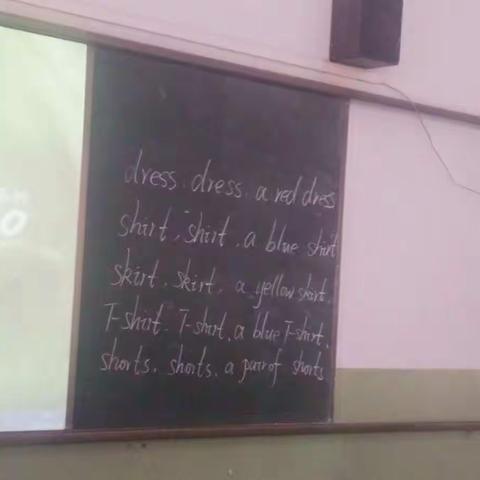 dress. dress. a red dress
shirt, shirt. a blue shirt
skirt. skirt. a yellow skirt.
T-shirt. T-shirt. a blue T-shirt.
shorts. shorts. a pair of shorts